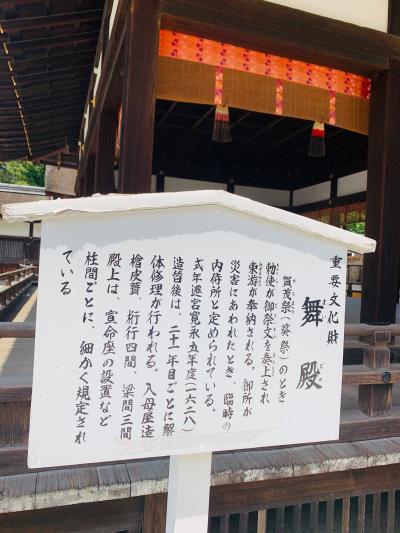 重要文化財
舞殿
賀茂祭（葵祭）のとき
勅使が御祭文を奏上され、
東游が奉納される。御所が
災害にあわれたとき、臨時の
内侍所と定められている。
式年遷宮寛永五年度（一六二八）
造替後は、二十一年目ごとに解
体修理が行われる。入母屋造
檜皮葺、桁行四間、梁間三間
殿上は、宣命座の設置など
柱間ごとに、細かく規定され
ている